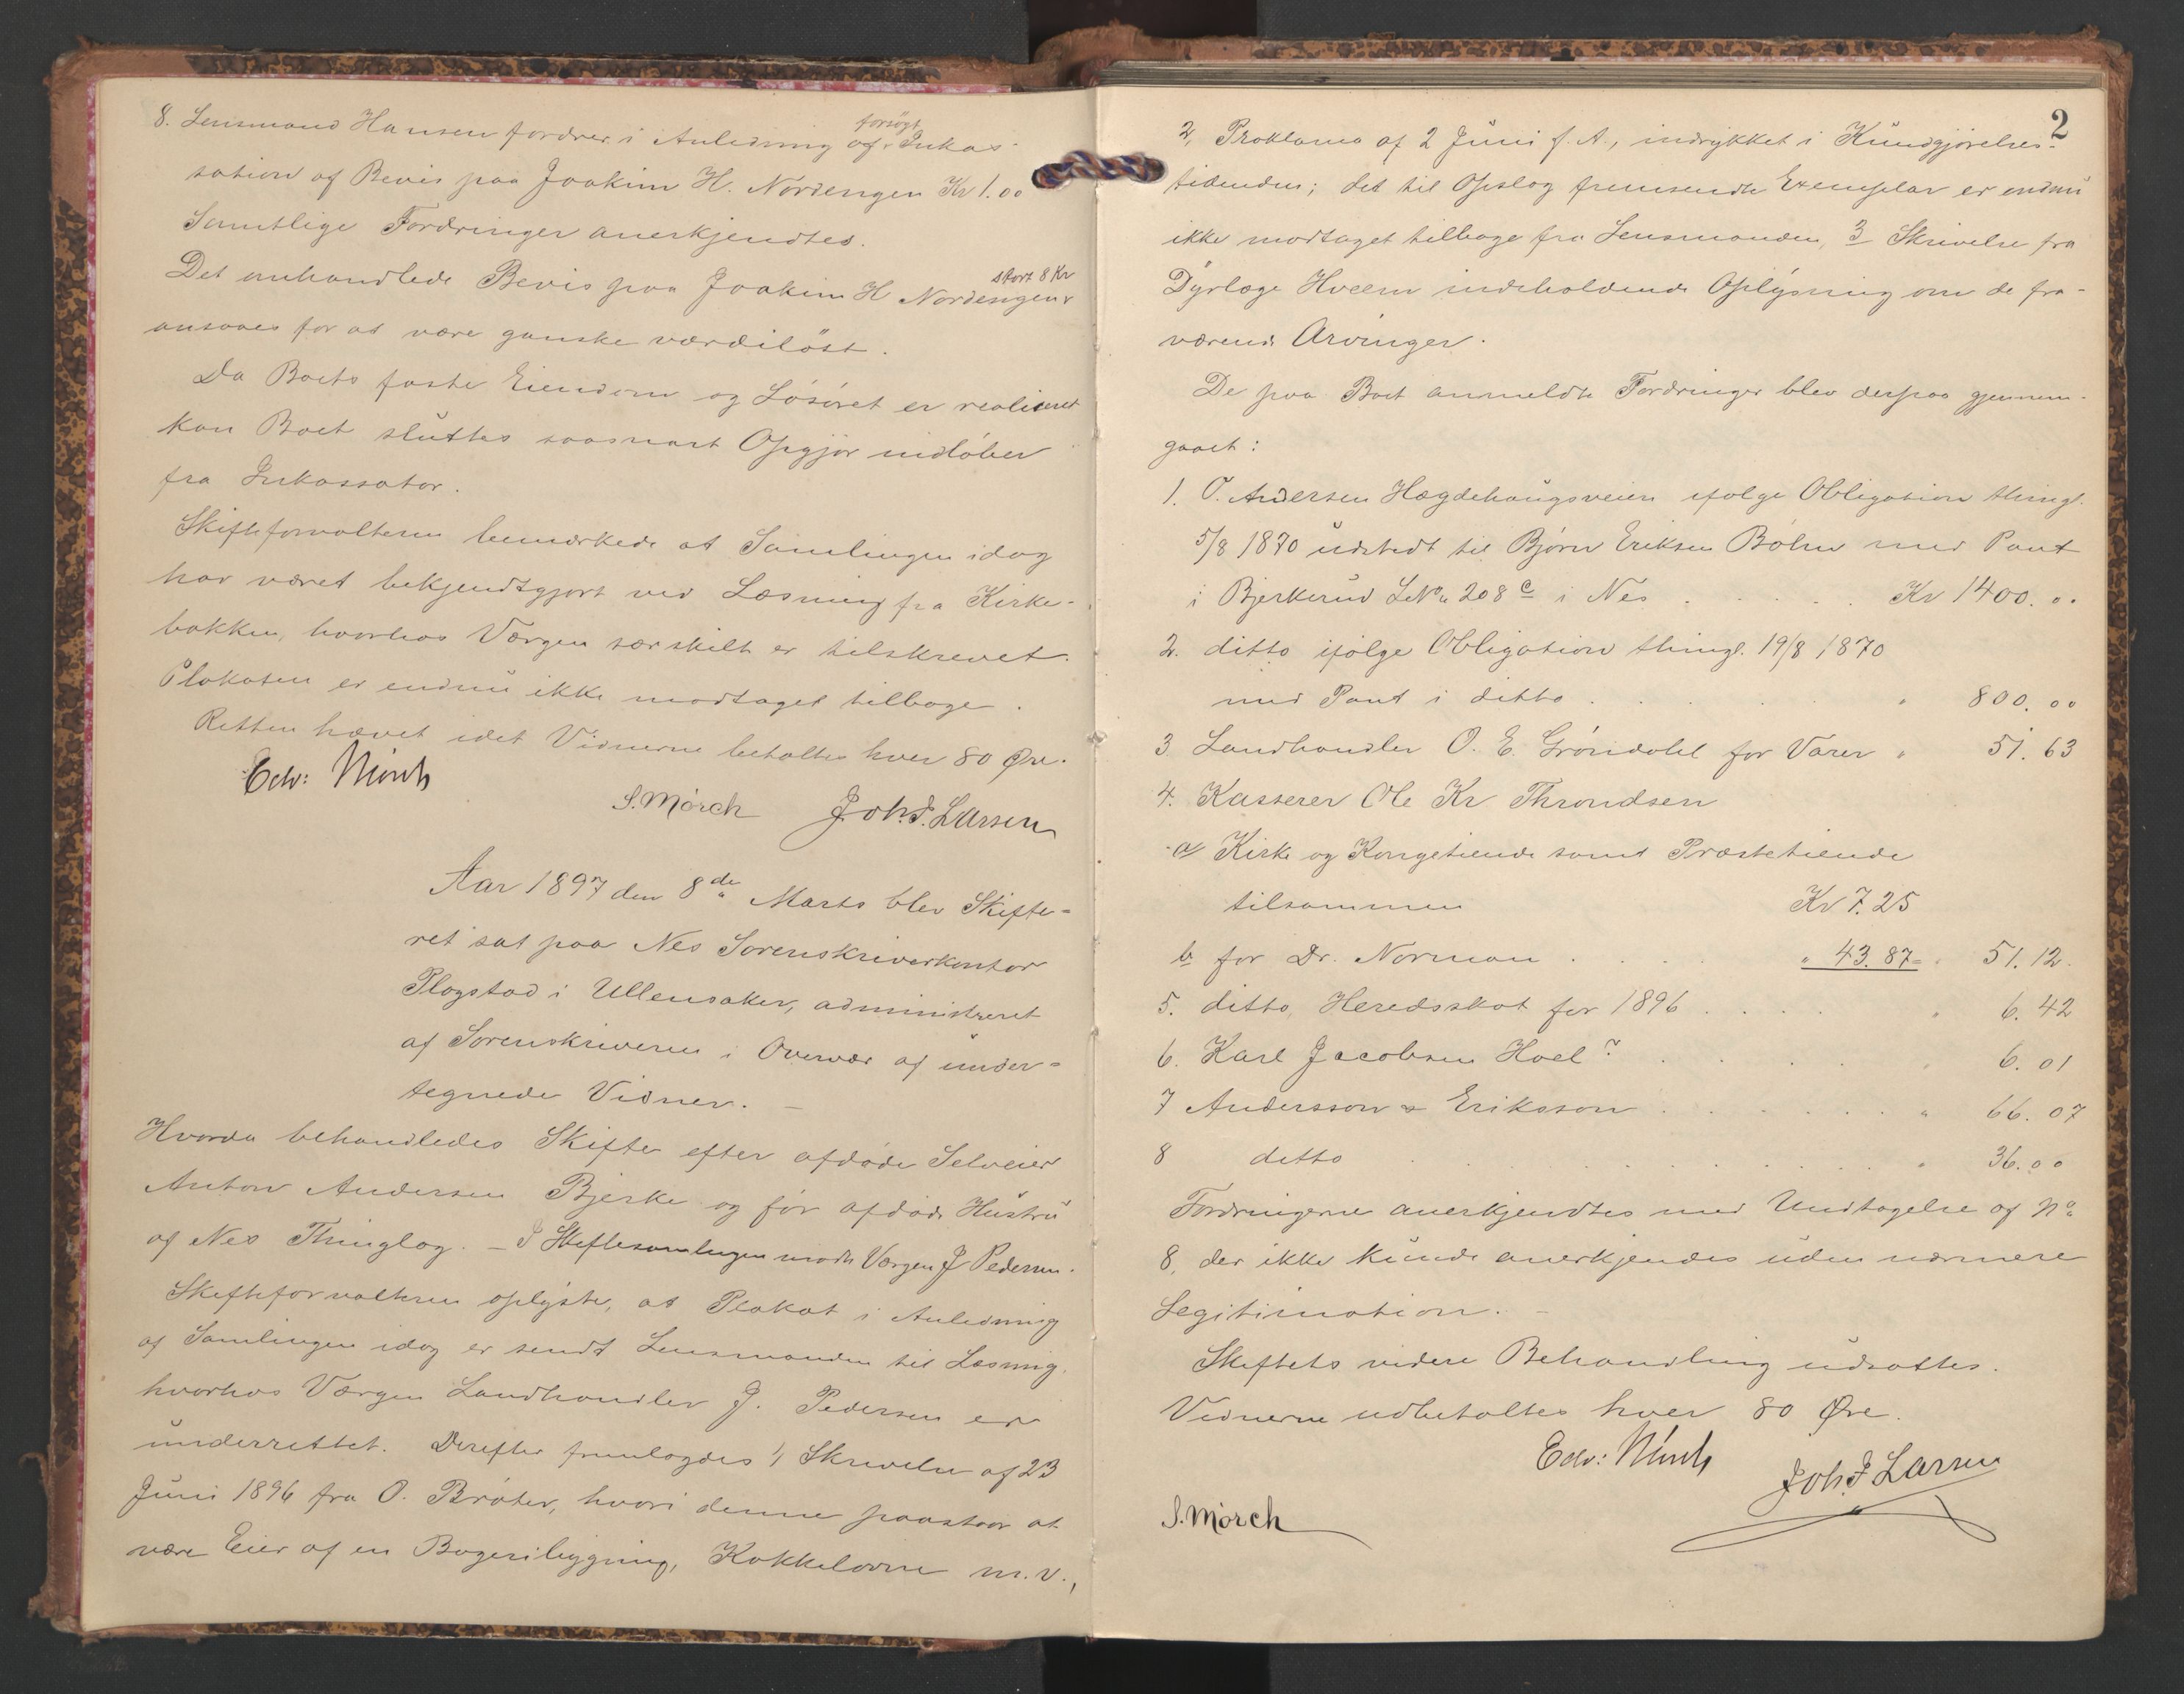 8. Lensmand Hansen fordrer i Anledning af forsøgt Inkas-
sation af Bevis paa Joakim H. Nordengen Kr 1.00
Samtlige Fordringer anerkjendtes.
Det omhandlede Bevis paa Joakim H Nordengen stort 8 Kr
ansaaes for at være ganske værdiløst.
Da Boets faste Eiendom og Løsøret er realiseret
kan Boet sluttes saasnart Opgjør indløber
fra Inkassator.
Skifteforvalteren bemærkede at Samlingen idag
har været bekjendtgjort ved Læsning fra Kirke-
bakken, hvorhos Værgen særskilt er tilskrevet.
Plakaten er endnu ikke modtaget tilbage.
Retten hævet idet Vidnerne betaltes hver 80 Øre.
Edv: Mørch
S. Mørch Joh. F. Larsen
Aar 1897 den 8de Marts blev Skifte-
ret sat paa Nes Sorenskriverkontor
Plogstad i Ullensaker, administreret
af Sorenskriveren i Overvær af under-
tegnede Vidner. –
Hvorda behandledes Skifte efter afdøde Selveier
Anton Andersen Bjerke og før afdøde Hustru
af Nes Thinglag. – I Skiftesamlingen mødte Værgen J Pedersen.
Skifteforvalteren oplyste, at Plakat i Anledning
af Samlingen idag er sendt Lensmanden til Læsning,
hvorhos Værgen Landhandler J. Pedersen er
underrettet. Derefter fremlagdes 1/ Skrivelse af 23
Juni 1896 fra O. Bråter, hvori denne paastaar at
være Eier af en Bageribygning, Kakkelovne m.v.,
2
2, Proklama af 2 Juni f. A., indrykket i Kundgjørelses-
tidenden; det til Opslag fremsendte Exemplar er endnu
ikke modtaget tilbage fra Lensmanden, 3 Skrivelse fra
Dyrlæge Hveem indeholdende Oplysning om de fra-
værende Arvinger.
De paa Boet anmeldte Fordringer blev derpaa gjennem-
gaaet:
1. O. Andersen Hægdehaugsveien ifølge Obligation thingl.
5/8 1870 udstedt til Bjørn Eriksen Böhn med Pant
i Bjerkerud LNo 208 c i Nes . . . . Kr 1400.00
2. ditto ifølge Obligation thingl. 19/8 1870
med Pant i ditto . . . . " 800.00
3. Landhandler O. E. Gröndahl for Varer " 51.63
4. Kasserer Ole Kr Throndsen
a Kirke og Kongetiende samt Præstetiende
tilsammen Kr 7.25
b for Dr. Norman . . . . " 43.87 = " 51.12
5. ditto, Heredsskat for 1896 . . . . " 6.42
6. Karl Jacobsen Hoel . . . . " 6.01
7 Andersson & Eriksson . . . . " 66.07
8 ditto . . . . " 36.00
Fordringerne anerkjendtes med Undtagelse af No
8, der ikke kunde anerkjendes uden nærmere
Legitimation. –
Skiftets videre Behandling udsattes.
Vidnerne udbetaltes hver 80 Øre.
Edv: Mørch Joh. F Larsen
S. Mørch